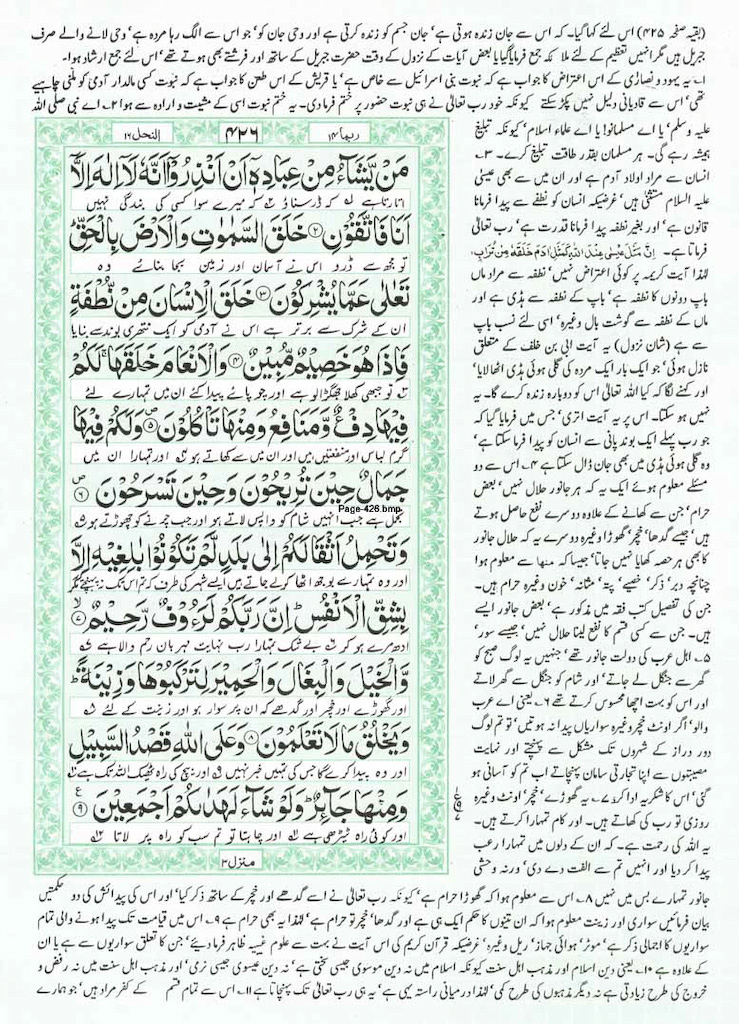 (بقیہ صفحہ ۴۲۵) اس لئے کہا گیا۔ کہ اس سے جان زندہ ہوتی ہے، جان جسم کو زندہ کرتی ہے اور وحی جان کو، جو اس سے الگ رہا مردہ ہے، وحی لانے والے صرف
جبریل ہیں مگر انہیں تعظیم کے لئے ملائکہ جمع فرمایا گیا یا بعض آیات کے نزول کے وقت حضرت جبریل کے ساتھ اور فرشتے بھی ہوتے تھے، اس لئے جمع ارشاد ہوا۔
۱۔ یہ یہود و نصاریٰ کے اس اعتراض کا جواب ہے کہ نبوت بنی اسرائیل سے خاص ہے، یا قریش کے اس طعن کا جواب ہے کہ نبوت کسی مالدار آدمی کو ملنی چاہیے
تھی، اس سے قادیانی دلیل نہیں پکڑ سکتے کیونکہ خود رب تعالیٰ نے ہی نبوت حضور پر ختم فرما دی۔ یہ ختم نبوت اسی کے مشیت و ارادہ سے ہوا ۲۔ اے نبی صلی اللہ
علیہ وسلم، یا اے مسلمانو! یا اے علماء اسلام، کیونکہ تبلیغ
ہمیشہ رہے گی۔ ہر مسلمان بقدر طاقت تبلیغ کرے۔ ۳۔
انسان سے مراد اولاد آدم ہے اور ان میں سے بھی عیسیٰ
علیہ السلام مستثنیٰ ہیں، غرضیکہ انسان کو نطفے سے پیدا فرمانا
قانون ہے، اور بغیر نطفہ پیدا فرمانا قدرت ہے، رب تعالیٰ
فرماتا ہے۔ اِنَّ مَثَلَ عِیْسٰی عِنْدَ اللّٰہِ کَمَثَلِ اٰدَمَ خَلَقَہٗ مِنْ تُرَابٍ
لہٰذا آیت کریمہ پر کوئی اعتراض نہیں، نطفہ سے مراد ماں
باپ دونوں کا نطفہ ہے، باپ کے نطفہ سے ہڈی ہے اور
ماں کے نطفہ سے گوشت بال وغیرہ، اسی لئے نسب باپ
سے ہے (شان نزول) یہ آیت ابی بن خلف کے متعلق
نازل ہوئی، جو ایک بار ایک مردہ کی گلی ہوئی ہڈی اٹھا لایا،
اور کہنے لگا کہ کیا اللہ تعالیٰ اس کو دوبارہ زندہ کرے گا۔ یہ
نہیں ہو سکتا۔ اس پر یہ آیت اتری، جس میں فرمایا گیا کہ
جو رب پہلے ایک بوند پانی سے انسان کو پیدا فرما سکتا ہے،
وہ گلی ہوئی ہڈی میں بھی جان ڈال سکتا ہے ۴۔ اس سے دو
مسئلے معلوم ہوئے ایک یہ کہ ہر جانور حلال نہیں، بعض
حرام، جن سے کھانے کے علاوہ دوسرے نفع حاصل ہوتے
ہیں، جیسے گدھا، خچر، گھوڑا وغیرہ دوسرے یہ کہ حلال جانور
کا بھی ہر حصہ کھایا نہیں جاتا، جیسا کہ منہا سے معلوم ہوا
چنانچہ دبر، ذکر، خصیے، پتہ، مثانہ، خون وغیرہ حرام ہیں۔
جن کی تفصیل کتب فقہ میں مذکور ہے، بعض جانور ایسے
ہیں۔ جن سے کسی قسم کا نفع لینا حلال نہیں، جیسے سور،
۵۔ اہل عرب کی دولت جانور تھے، جنہیں یہ لوگ صبح کو
گھر سے جنگل لے جاتے، اور شام کو جنگل سے گھر لاتے
اور اس کو بہت اچھا محسوس کرتے تھے ۶۔ یعنی اے عرب
والو، اگر اونٹ خچر وغیرہ سواریاں پیدا نہ ہوتیں، تو تم لوگ
دور دراز کے شہروں تک مشکل سے پہنچتے اور نہایت
مصیبتوں سے اپنا تجارتی سامان پہنچاتے اب تم کو آسانی ہو
گئی، اس کا شکریہ ادا کرو ۷۔ یہ گھوڑے، خچر، اونٹ وغیرہ
روزی تو رب کی کھاتے ہیں۔ اور کام تمہارا کرتے ہیں۔
یہ اللہ کی رحمت ہے۔ کہ ان کے دلوں میں تمہارا رعب
پیدا کر دیا اور انہیں تم سے الفت دے دی، ورنہ وحشی
ربما ۱۴
۴۲۶
النحل ۱۶
مَنْ یَّشَآءُ مِنْ عِبَادِهٖۤ اَنْ اَنْذِرُوْۤا اَنَّهٗ لَاۤ اِلٰهَ اِلَّاۤ
اتارتا ہے کہ ڈر سناؤ کہ میرے سوا کسی کی بندگی نہیں
اَنَا فَاتَّقُوْنِ ۲ خَلَقَ السَّمٰوٰتِ وَ الْاَرْضَ بِالْحَقِّ
تو مجھ سے ڈرو اس نے آسمان اور زمین بجا بنائے وہ
تَعٰلٰی عَمَّا یُشْرِكُوْنَ ۳ خَلَقَ الْاِنْسَانَ مِنْ نُّطْفَةٍ
ان کے شرک سے برتر ہے اس نے آدمی کو ایک نتھری بوند سے بنایا
فَاِذَا هُوَ خَصِیْمٌ مُّبِیْنٌ ۴ وَ الْاَنْعَامَ خَلَقَهَا ۚ لَكُمْ
تو جبھی کھلا جھگڑالو ہے اور چوپائے پیدا کئے ان میں تمہارے لئے
فِیْهَا دِفْءٌ وَّ مَنَافِعُ وَ مِنْهَا تَاْكُلُوْنَ ۵ وَ لَكُمْ فِیْهَا
گرم لباس اور منفعتیں ہیں اور ان میں سے کھاتے ہو اور تمہارا ان میں
جَمَالٌ حِیْنَ تُرِیْحُوْنَ وَ حِیْنَ تَسْرَحُوْنَ ۶
Page-426.bmp
تجمل ہے جب انہیں شام کو واپس لاتے ہو اور جب چرنے کو چھوڑتے ہو
وَ تَحْمِلُ اَثْقَالَكُمْ اِلٰی بَلَدٍ لَّمْ تَكُوْنُوْا بٰلِغِیْهِ اِلَّا
اور وہ تمہارے بوجھ اٹھا کر لے جاتے ہیں ایسے شہر کی طرف کہ تم اس تک نہ پہنچتے مگر
بِشِقِّ الْاَنْفُسِ ؕ اِنَّ رَبَّكُمْ لَرَءُوْفٌ رَّحِیْمٌ ۷
ادھ مرے ہو کر بے شک تمہارا رب نہایت مہربان رحم والا ہے
وَّ الْخَیْلَ وَ الْبِغَالَ وَ الْحَمِیْرَ لِتَرْكَبُوْهَا وَ زِیْنَةً ؕ
اور گھوڑے اور خچر اور گدھے کہ ان پر سوار ہو اور زینت کے لئے
وَ یَخْلُقُ مَا لَا تَعْلَمُوْنَ ۸ وَ عَلَی اللّٰهِ قَصْدُ السَّبِیْلِ
اور وہ پیدا کرے گا جس کی تمہیں خبر نہیں اور بیچ کی راہ ٹھیک اللہ تک ہے
وَ مِنْهَا جَآىِٕرٌ ؕ وَ لَوْ شَآءَ لَهَدٰىكُمْ اَجْمَعِیْنَ ۹
اور کوئی راہ ٹیڑھی ہے اور چاہتا تو تم سب کو راہ پر لاتا
منزل ۳
جانور تمہارے بس میں نہیں ۸۔ اس سے معلوم ہوا کہ گھوڑا حرام ہے، کیونکہ رب تعالیٰ نے اسے گدھے اور خچر کے ساتھ ذکر کیا، اور اس کی پیدائش کی دو حکمتیں
بیان فرمائیں سواری اور زینت معلوم ہوا کہ ان تینوں کا حکم ایک ہی ہے اور گدھا، خچر تو حرام ہے، لہٰذا یہ بھی حرام ہے ۹۔ اس میں قیامت تک پیدا ہونے والی تمام
سواریوں کا اجمالی ذکر ہے، موٹر، ہوائی جہاز، ریل وغیرہ، غرضیکہ قرآن کریم کی اس آیت نے بہت سے علوم غیبیہ ظاہر فرما دیئے، جن کا تعلق سواریوں سے ہے یا ان
کے علاوہ ہے ۱۰۔ یعنی دین اسلام اور مذہب اہل سنت کیونکہ اسلام میں نہ دین موسوی جیسی سختی ہے، نہ دین عیسوی جیسی نرمی، اور مذہب اہل سنت میں نہ رفض و
خروج کی طرح زیادتی ہے نہ دیگر مذہبوں کی طرح کمی، لہٰذا درمیانی راستہ یہی ہے، یہ ہی رب تعالیٰ تک پہنچاتا ہے ۱۱۔ اس سے تمام قسم کے کفر مراد ہیں، جو ہمارے